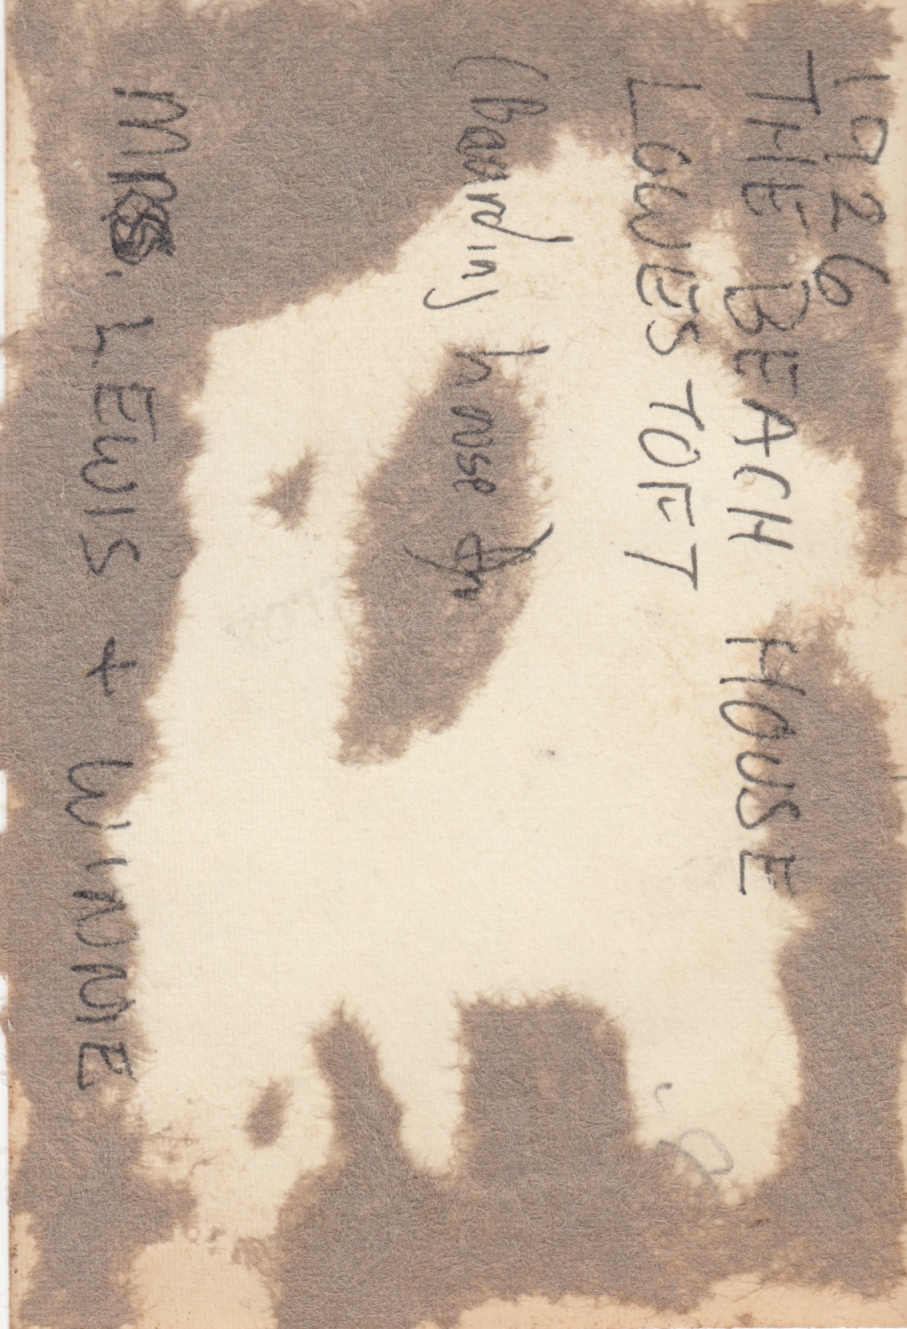 1926
THE BEACH HOUSE
LOWESTOFT
(Boarding house
MRS. LEWIS + WINNIE